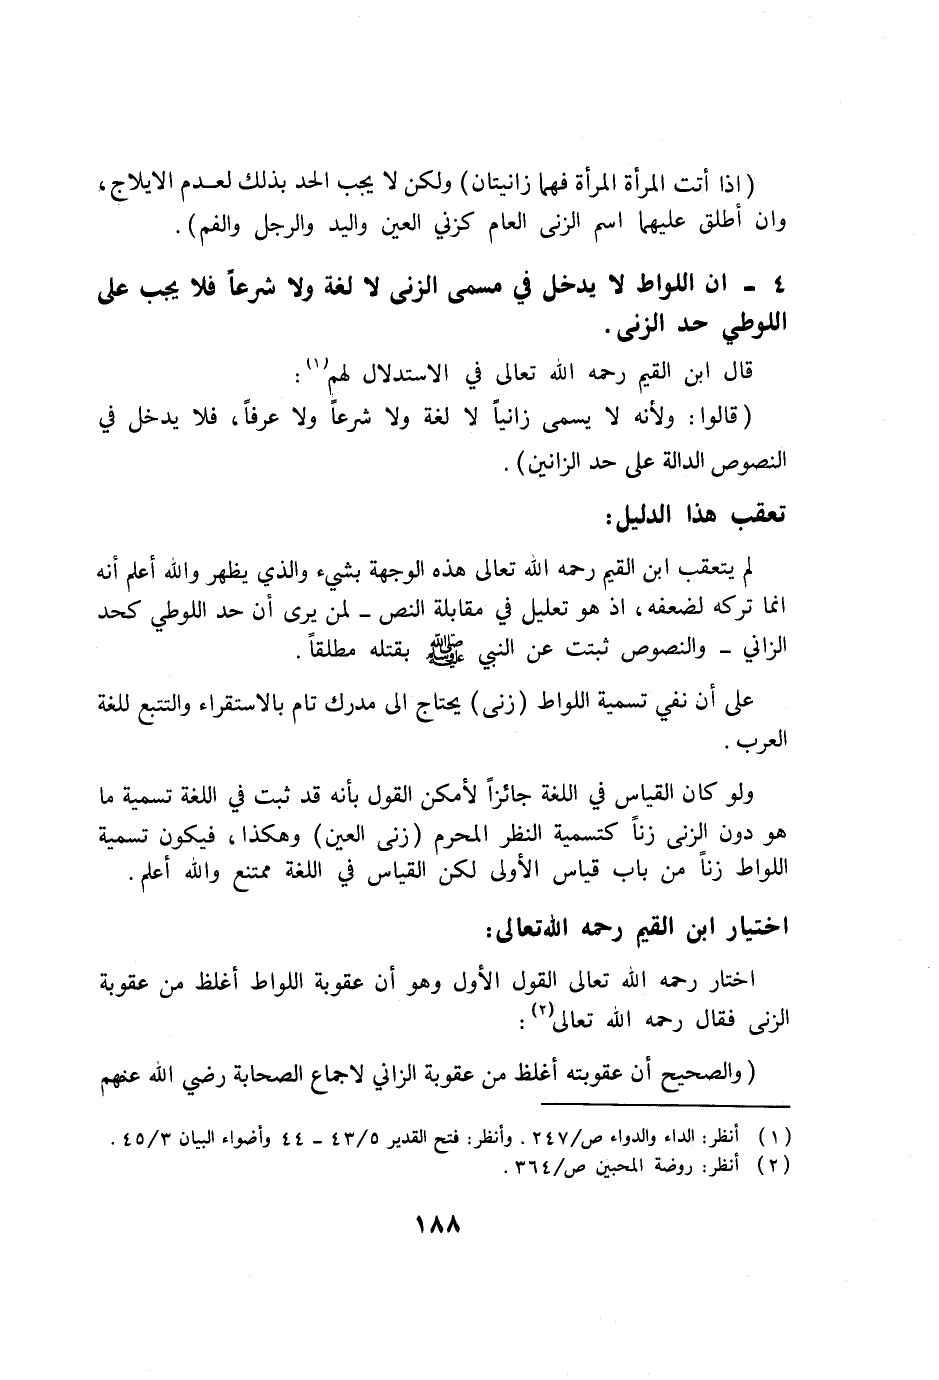 (اذا أتت المرأة المرأة فهما زانيتان) ولكن لا يجب الحد بذلك لعدم الايلاج،
وان أطلق عليهما اسم الزنى العام كزني العين واليد والرجل والفم).
٤ - ان اللواط لا يدخل في مسمى الزنى لا لغة ولا شرعاً فلا يجب على
اللوطي حد الزنى.
قال ابن القيم رحمه الله تعالى في الاستدلال لهم(١):
(قالوا: ولأنه لا يسمى زانياً لا لغة ولا شرعاً ولا عرفاً، فلا يدخل في
النصوص الدالة على حد الزانين).
تعقب هذا الدليل:
لم يتعقب ابن القيم رحمه الله تعالى هذه الوجهة بشيء والذي يظهر والله أعلم أنه
انما تركه لضعفه، اذ هو تعليل في مقابلة النص - لمن يرى أن حد اللوطي كحد
الزاني - والنصوص ثبتت عن النبي ﷺ بقتله مطلقاً.
على أن نفي تسمية اللواط (زنى) يحتاج الى مدرك تام بالاستقراء والتتبع للغة
العرب.
ولو كان القياس في اللغة جائزاً لأمكن القول بأنه قد ثبت في اللغة تسمية ما
هو دون الزنى زناً كتسمية النظر المحرم (زنى العين) وهكذا، فيكون تسمية
اللواط زناً من باب قياس الأولى لكن القياس في اللغة ممتنع والله أعلم.
اختيار ابن القيم رحمه الله تعالى:
اختار رحمه الله تعالى القول الأول وهو أن عقوبة اللواط أغلظ من عقوبة
الزنى فقال رحمه الله تعالى(٢):
(والصحيح أن عقوبته أغلظ من عقوبة الزاني لاجماع الصحابة رضي الله عنهم
(١) أنظر: الداء والدواء ص/٢٤٧. وأنظر: فتح القدير ٤٣/٥ - ٤٤ وأضواء البيان ٤٥/٣.
(٢) أنظر: روضة المحبين ص/٣٦٤.
١٨٨